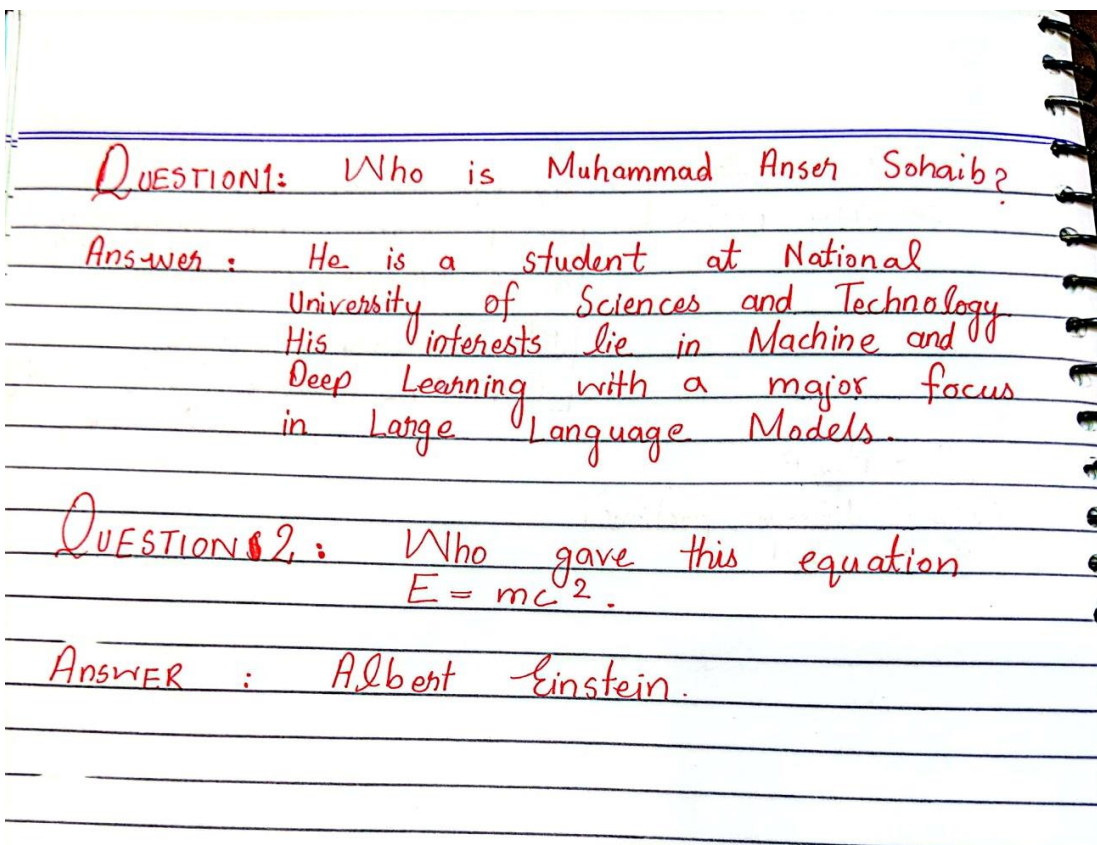 QUESTION1: Who is Muhammad Anser Sohaib?
Answer : He is a student at National
University of Sciences and Technology
His interests lie in Machine and
Deep Learning with a major focus
in Large Language Models.
QUESTION 2 : Who gave this equation
E = mc².
ANSWER : Albert Einstein.